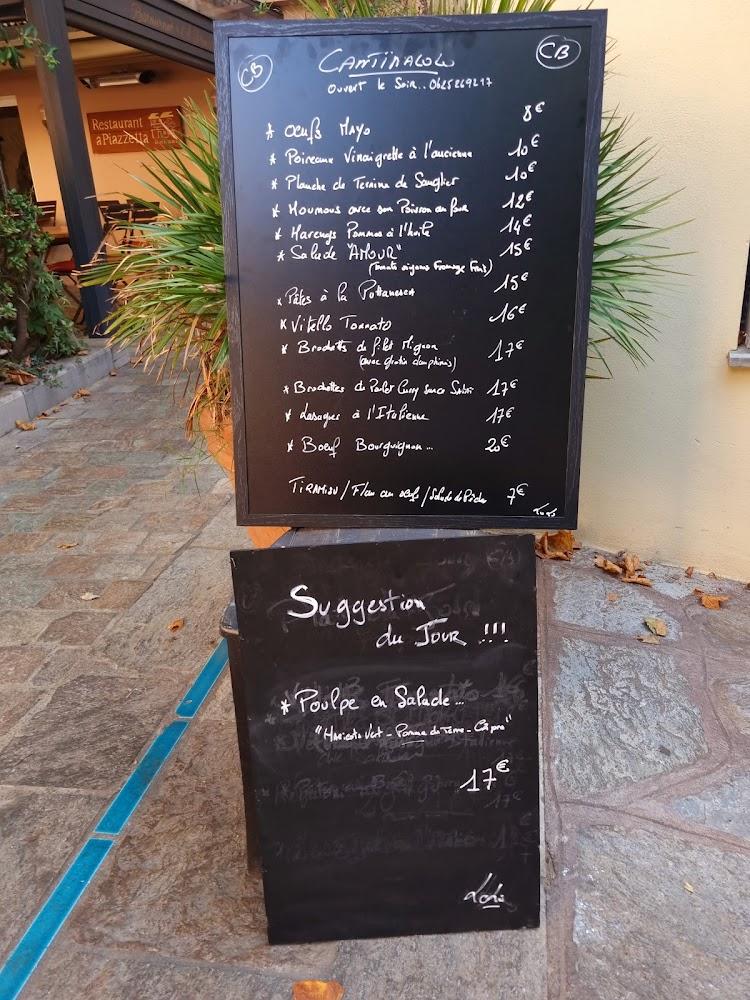 Restaurant
a Piazzetta
CB
CANTINALOLO
CB
Ouvert le Soir.. 0625269217
* Oeufs Mayo 8€
* Poireaux Vinaigrette à l'ancienne 10€
* Planche de Terrine de Sanglier 10€
* Houmous avec son Poivron au four 12€
* Harengs Pommes à l'huile 14€
* Salade "AMOUR" 15€
(Tomate oignons Fromage Feta)
* Pâtes à la Puttanesca 15€
* Vitello Tonnato 16€
* Brochettes de filet Mignon 17€
(avec gratin dauphinois)
* Brochettes de Poulet Curry Sauce 17€
* Lasagnes à l'Italienne 17€
* Boeuf Bourguignon... 20€
TIRAMISU / Flan aux oeufs / Salade de Pêches 7€
Suggestion
du JOUR !!!
* Poulpe en Salade...
"Haricots Vert - Pomme de Terre - Câpres"
17€
Lolo